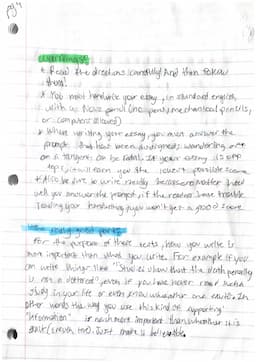 pg 4
Warnings!
* Read the directions carefully! And then follow them!
* You must handwrite your essay, in standard english,
with a No. 2 pencil (no pens, mechanical pencils,
or computers allowed)
* When writing your essay, you must answer the
prompt that has been assigned. wandering off
on a tangent can be fatal. If your essay is off
topic, it will earn you the lowest possible score
* Also be sure to write neatly because no matter how
well you answer the prompt, if the readers have trouble
reading your handwriting, you won't get a good score
For the purpose of these tests, how you write is
more important than what you write. For example if you
can write things like "Studies show that the death penalty
is not a deterrent", even if you have never read such a
study in your life or even know whether one exists. In
other words the way you use this kind of supporting
"information" is much more important than whether it is
Just make it believable.